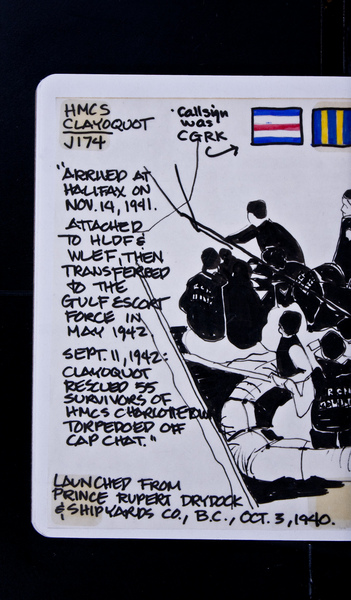 HMCS
CLAYOQUOT
J174
Callsign
was
CGRK
"ARRIVED AT
HALIFAX ON
NOV. 14, 1941.
ATTACHED
TO HLDF &
WLEF, THEN
TRANSFERRED
TO THE
GULF ESCORT
FORCE IN
MAY 1942.
SEPT. 11, 1942:
CLAYOQUOT
RESCUED 55
SURVIVORS OF
HMCS CHARLOTTETOWN
TORPEDOED OFF
CAP CHAT."
LAUNCHED FROM
PRINCE RUPERT DRYDOCK
& SHIPYARDS CO., B.C., OCT. 3, 1940.